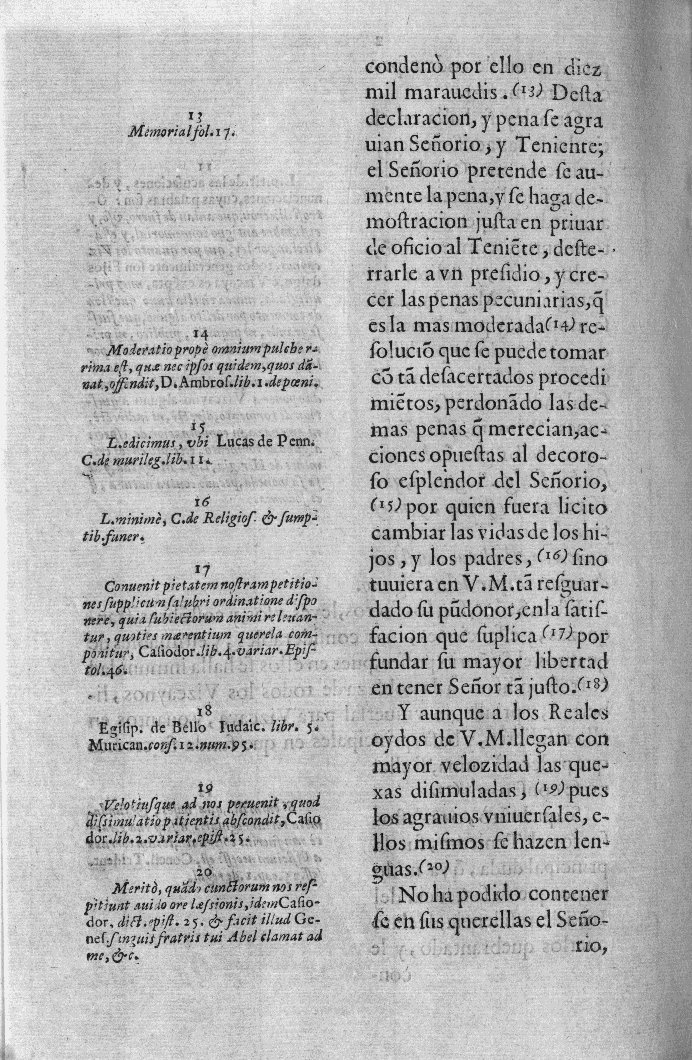 13
Memorial fol.17.
14
Moderatio propè omnium pulcher r-
rima eſt, quæ nec ipſos quidem, quos dã-
nat, offendit, D. Ambroſ. lib. 1. de pœni.
15
L. edicimus, vbi Lucas de Penn.
C. de murileg. lib. 11.
16
L. minimè, C. de Religioſ. & ſump-
tib. funer.
17
Conuenit pietatem noſtram petitio-
nes ſupplicum ſalubri ordinatione diſpo
nere, quia ſubiectorum animi releuan-
tur, quoties mærentium querela com-
ponitur, Caſiodor. lib. 4. variar. Epiſ-
tol. 46.
18
Egiſip. de Bello Iudaic. libr. 5.
Murican. conſ. 12. num. 95.
19
Velotiuſque ad nos peruenit, quod
diſsimulatio patientis abſcondit, Caſio
dor. lib. 2. variar. epiſt. 25.
20
Meritò, cunctorum nos reſ-
pitiunt auido ore læſsionis, idem Caſio-
dor. dict. epiſt. 25. & facit illud Ge-
neſ. ſanguis fratris tui Abel clamat ad
me, &c.
condenò por ello en diez
mil marauedis. (13) Deſta
declaracion, y pena ſe agra
uian Señorio, y Teniente;
el Señorio pretende ſe au-
mente la pena, y ſe haga de-
moſtracion juſta en priuar
de oficio al Teniẽte, deſte-
rrarle a vn preſidio, y cre-
cer las penas pecuniarias, q̃
es la mas moderada (14) re-
ſoluciõ que ſe puede tomar
cõ tã deſacertados procedi
miẽtos, perdonãdo las de-
mas penas q̃ merecian, ac-
ciones opueſtas al decoro-
ſo eſplendor del Señorio,
(15) por quien fuera licito
cambiar las vidas de los hi-
jos, y los padres, (16) ſino
tuuiera en V.M. tã reſguar-
dado ſu pũdonor, en la ſatiſ-
facion que ſuplica (17) por
fundar ſu mayor libertad
en tener Señor tã juſto. (18)
Y aunque a los Reales
oydos de V.M. llegan con
mayor velozidad las que-
xas diſimuladas, (19) pues
los agrauios vniuerſales, e-
llos miſmos ſe hazen len-
guas. (20)
No ha podido contener
ſe en ſus querellas el Seño-
rio,